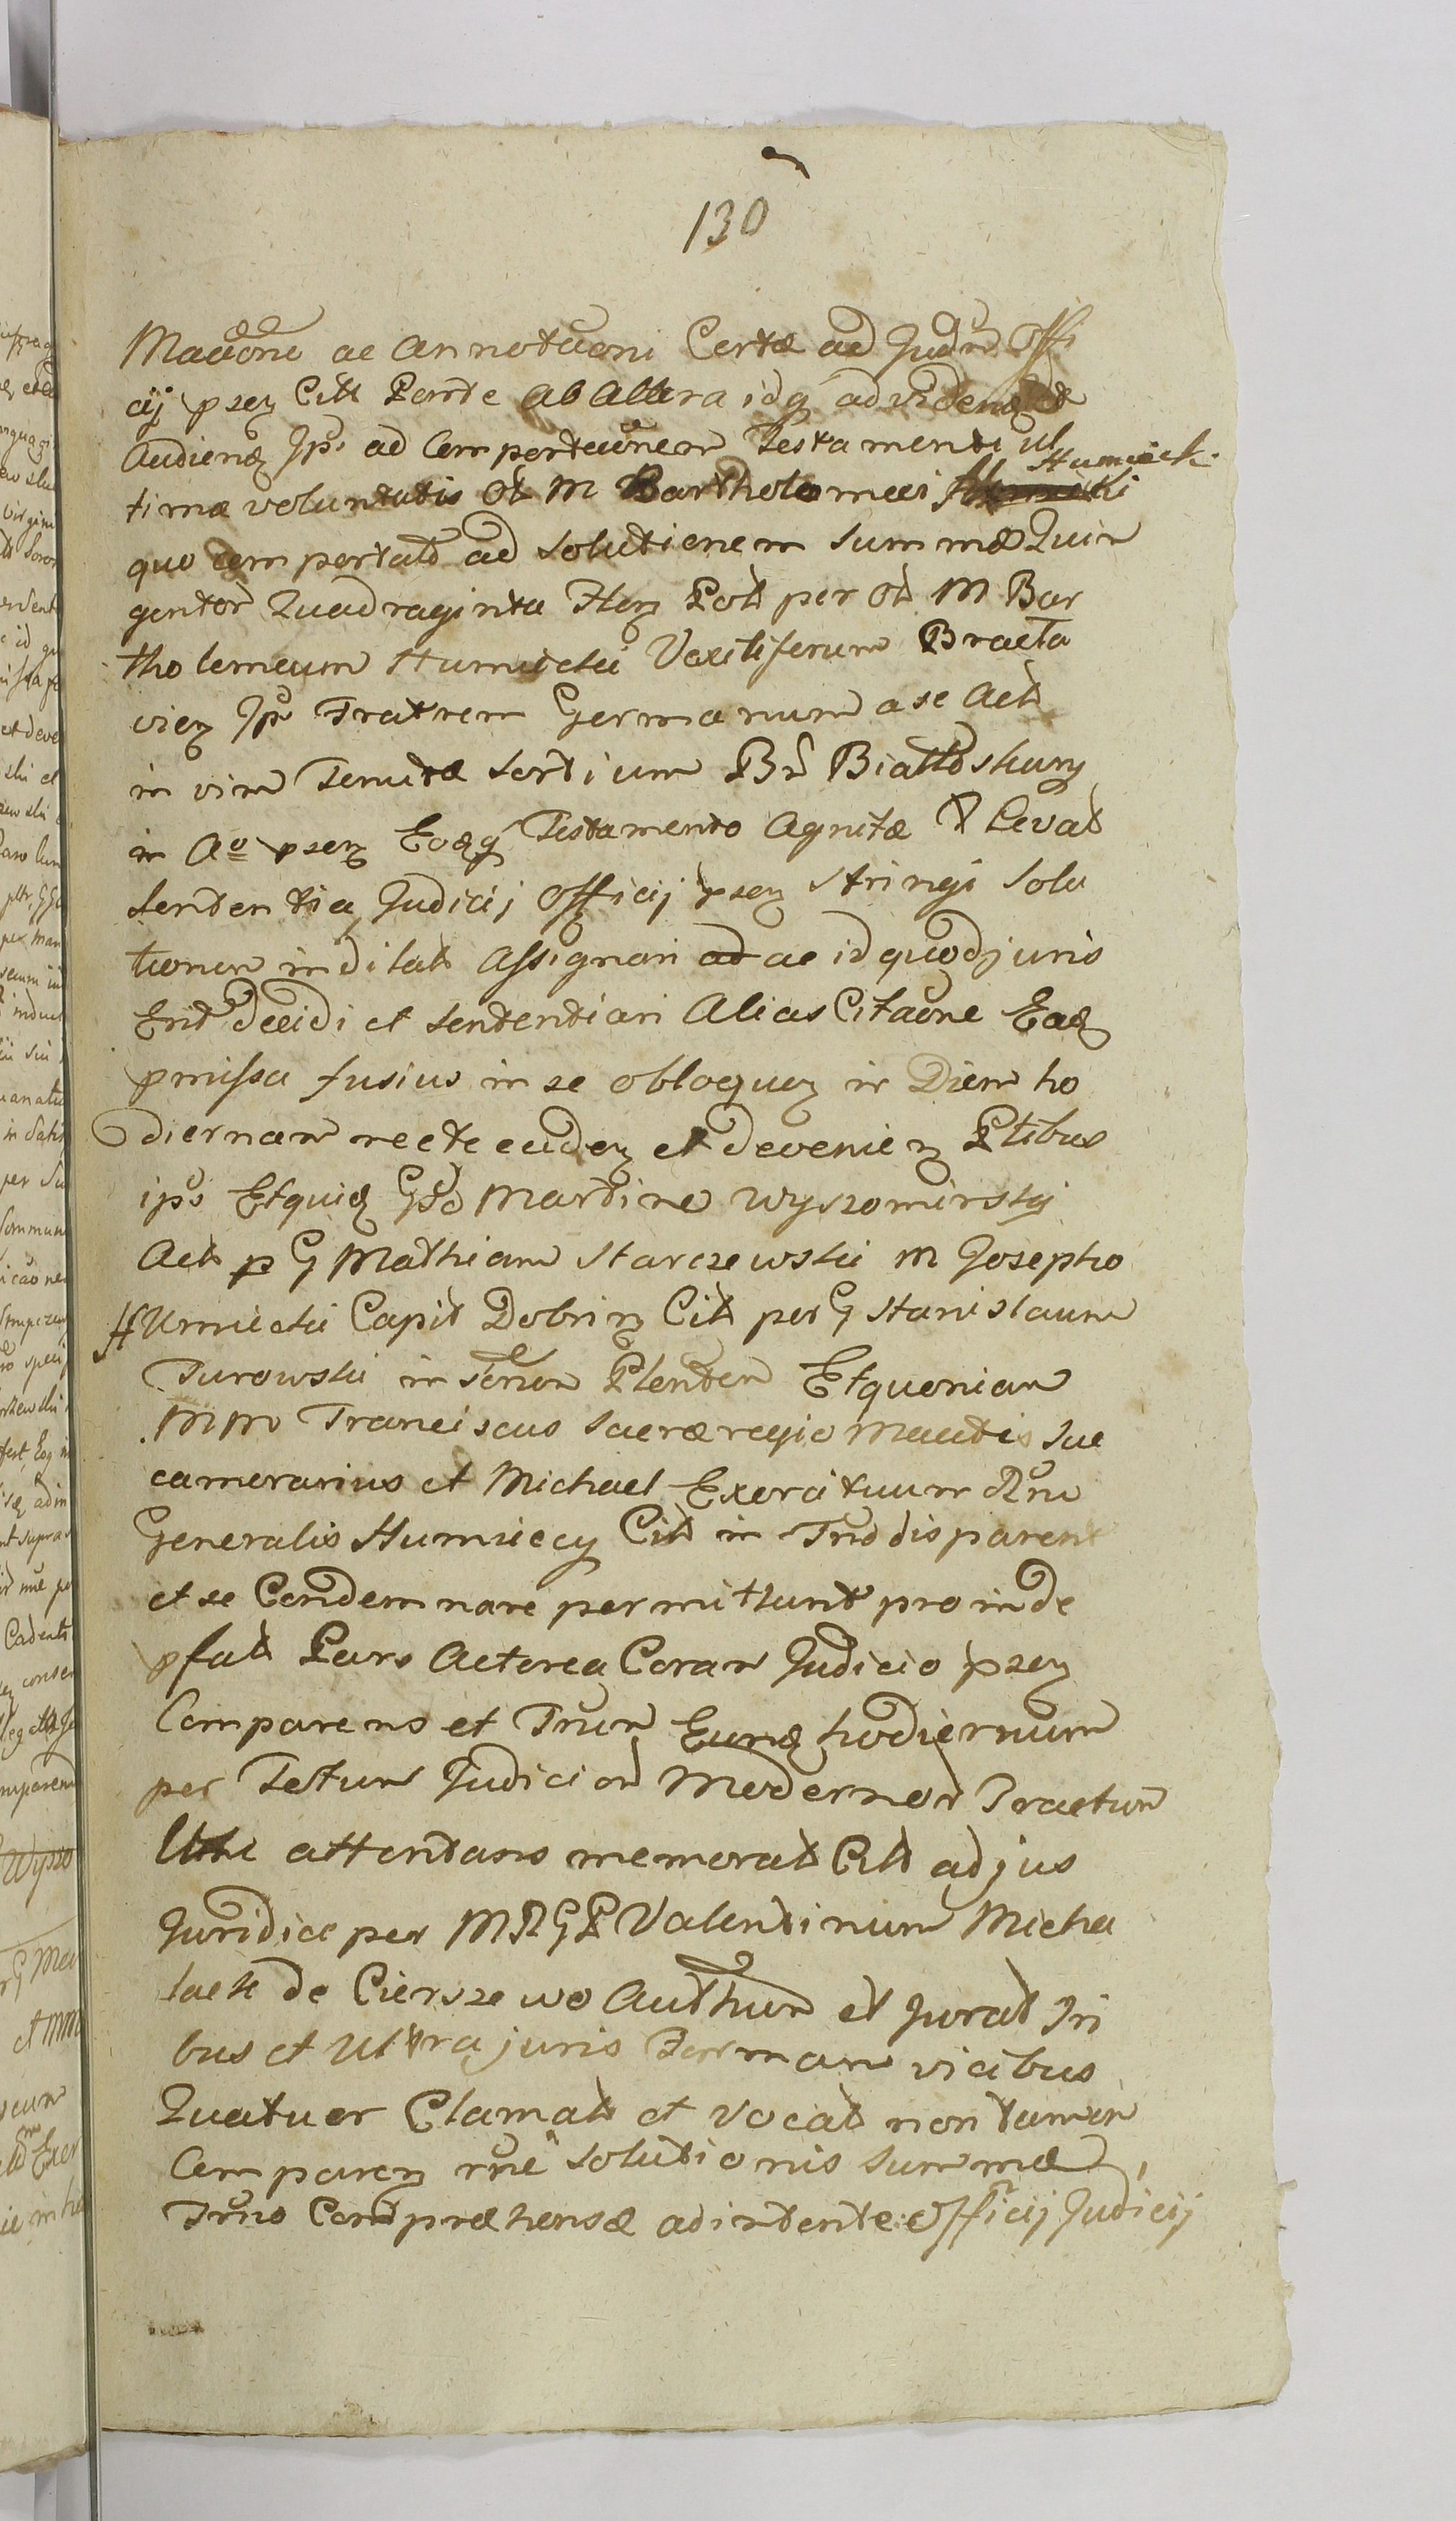 130
Maõne ac Annotaõni Certæ ad Judm Offi
cij psez Citt Parte ab Altera idq ad videnq et
Audienq Jps ad Comportaõnem Testamenti ul
timæ voluntatis Ol M Bartholomæi Humiecki
quo Comportato ad solutionem summæ Quin
gentor Quadraginta Flnz Pol per Ol M Bar
tholomeum Humiecki Vexiliferum Bracla
viez Jps Fratrem Germanum a se Act
in vim Tenutæ Sortium Br Białłoskurz
in Ao psez Eoqq Testamento Agnitæ & Levat
Sententia Judicij Officij psez Stringi solu
tionem indilat Assignari ac id quod juris
Erit decidi et sententiari Alias Citaõne Eaq
pmissa fusius in se obloquez in Diem ho
diernam recte cadez et deveniez Ptibus
ips Etquiq Gso Martino Wyszomirskj
Act p G Mathiam Starczewski M Josepho
Humiecki Capit Dobrin Citt per G Stanislaum
Turowski in Tõrm Plenten Etquoniam
MM Franciscus Sacræ regiæ Maettis suæ
camerarius et Michael Exercituum Rni
Generalis Humieccy Citt in Trno disparent
et se Condemnare permittunt proinde
pfat Pars Actorea Coram Judicio psez
Comparens et Trnum Eunq hodiernum
per Totum Judicior Modernor Tractum
attentans memorat Citt ad jus
Juridice per MRGP Valentinum Micha
łack de Cierszewo Authum et Jurat Tri
bus et Ultra juris Formam vicibus
Quatuor Clamat et vocat non tamen
Comparez rne solutionis summæ
Trno Comtpræhensæ ad intente Officij Judicij